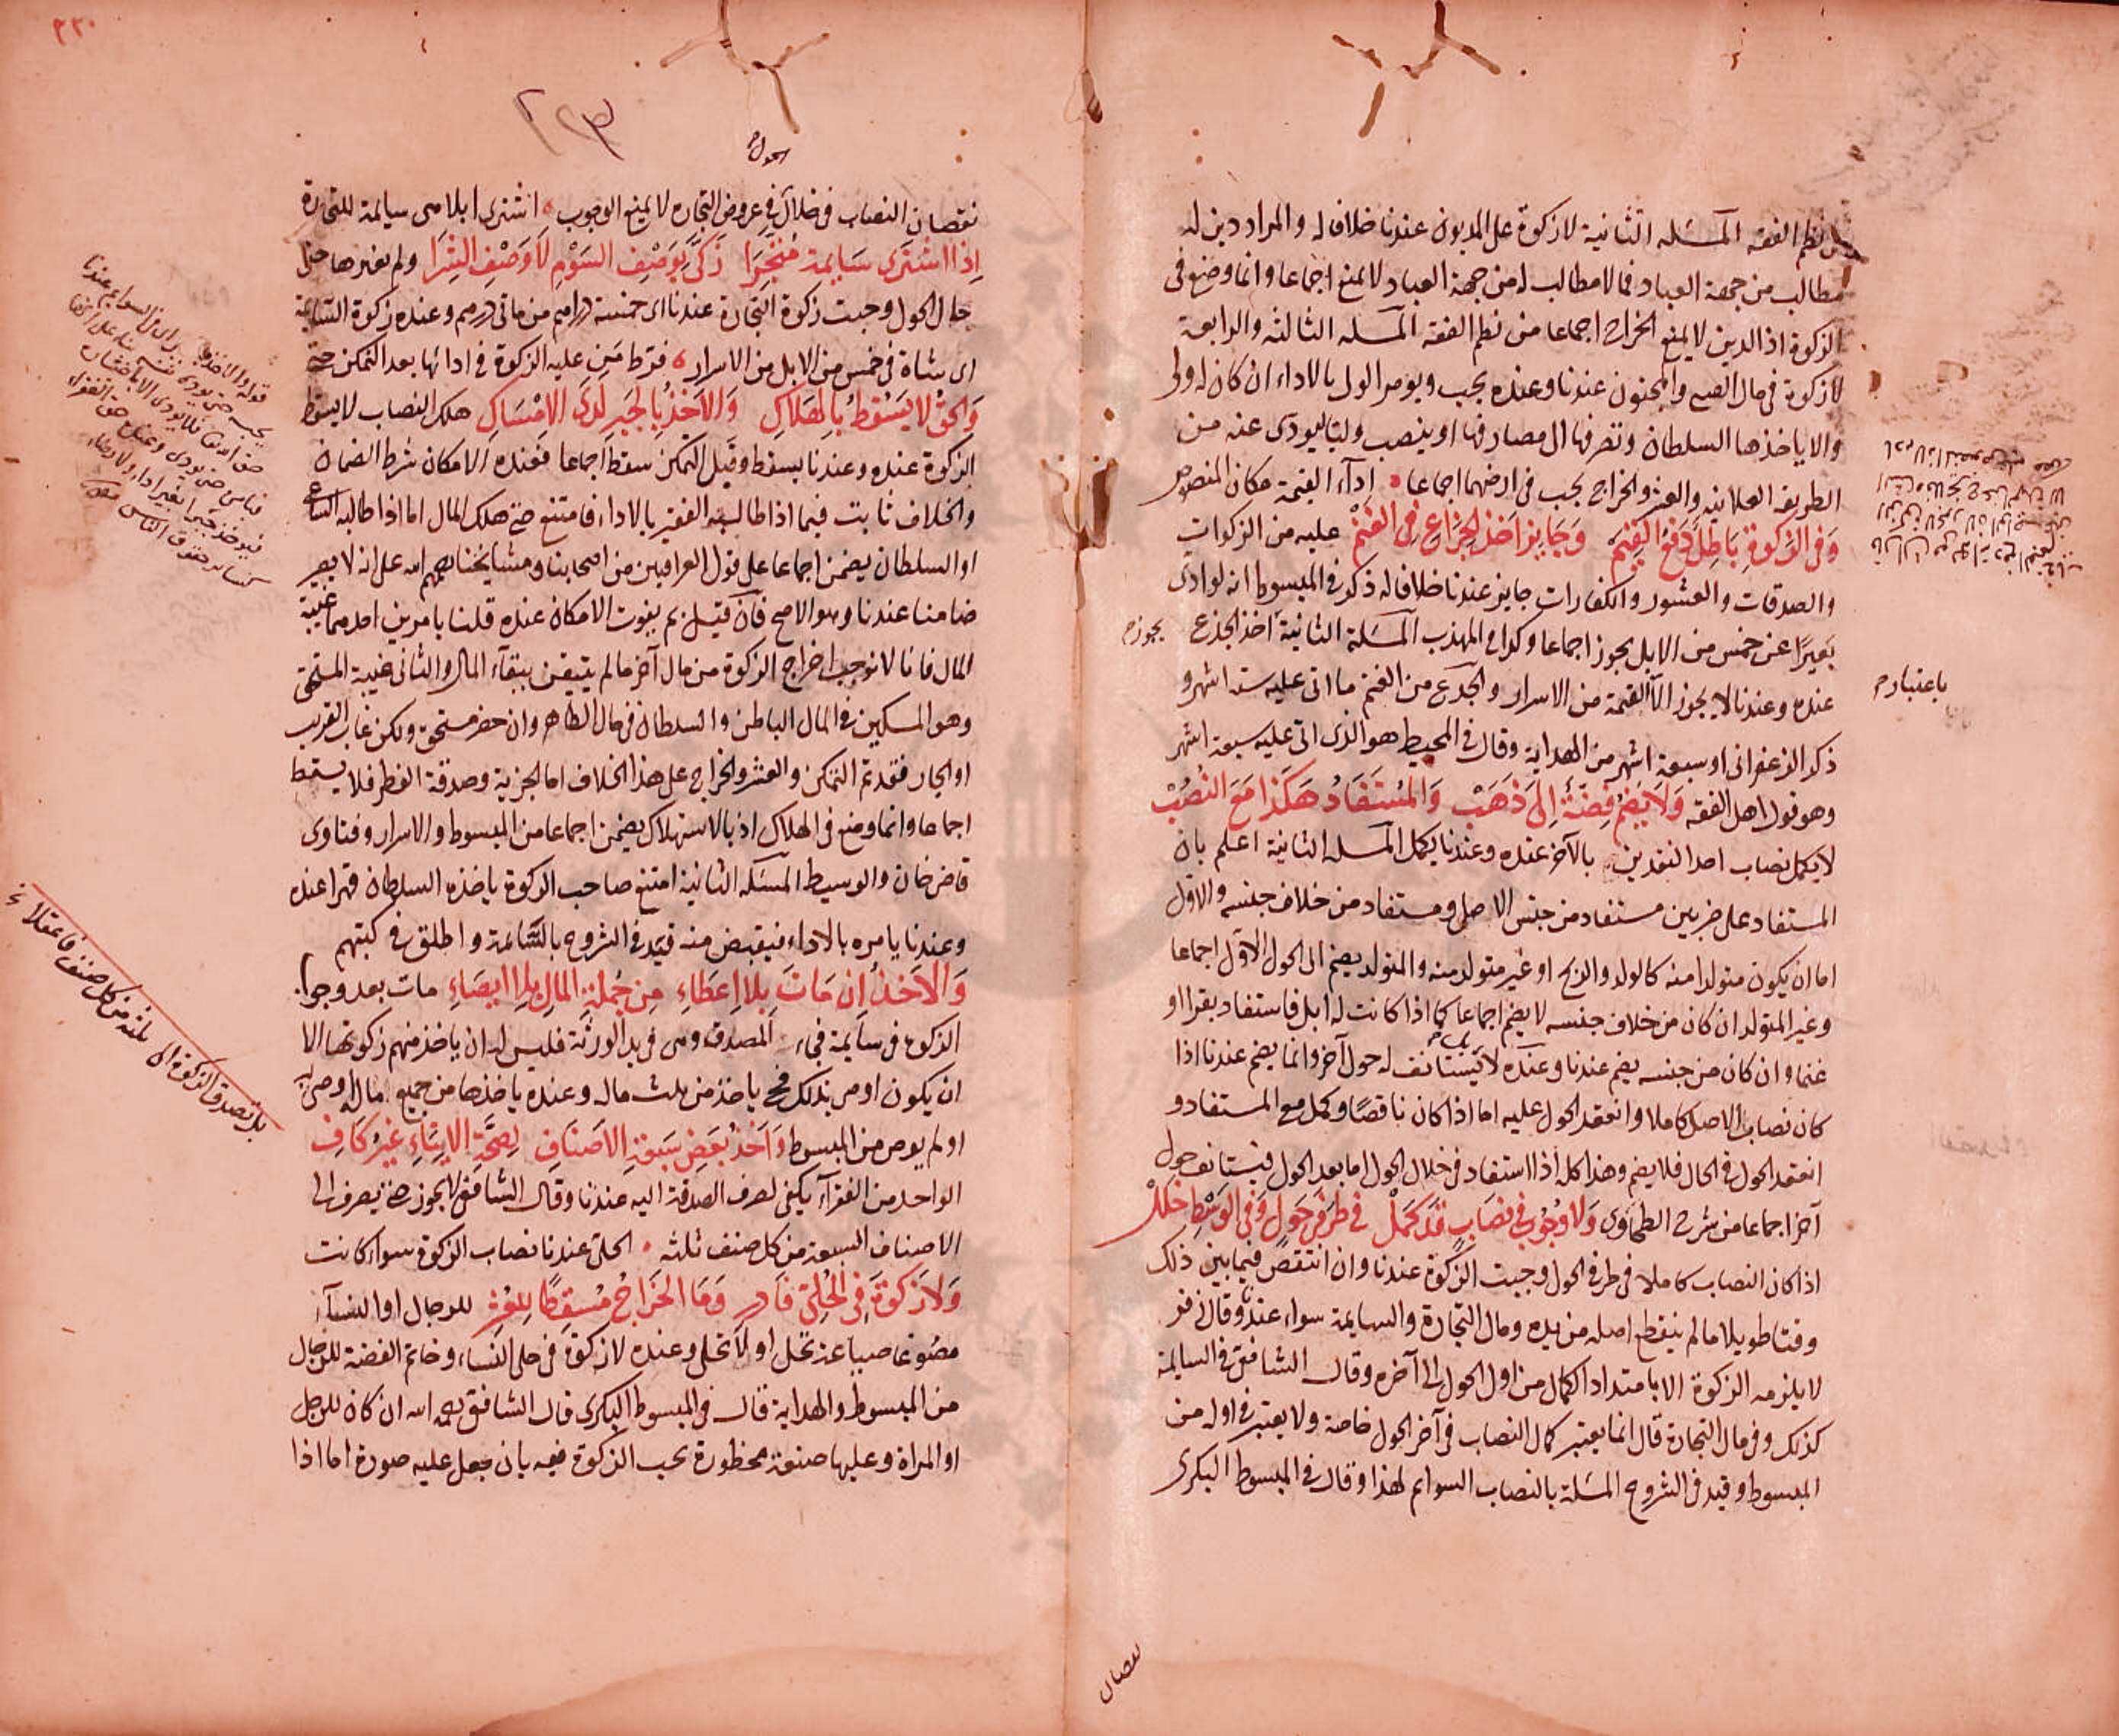 من نظم الفقه المسئله الثانية لا زكوة على المديون عندنا خلافا له والمراد دين له
مطالب من جهة العباد فما لا مطالب له من جهة العباد لا يمنع اجماعا وانما وضع فى
الزكوة اذ الدين لا يمنع الخراج اجماعا من نظم الفقه المسله الثالثه والرابعة
لا زكوة فى مال الصبى والمجنون عندنا وعنده يجب ويومر الولى بالاداء ان كان له ولى
والا ياخذها السلطان وتصرفها الى مصارفها او ينصب وليا ليودى عنه من
الطريقة العلائية والعشر والخراج يجب فى ارضهما اجماعا اداء القيمة مكان المنصوص
وَفى الزكوةِ بَاطِل دَفعُ القِيَم وَجَايز اَخذ الجِذَاعِ فى الغَنَمْ عليه من الزكوات
والصدقات والعشور والكفارات جايز عندنا خلافا له ذكر فى المبسوط انه لو ادى
بَعيرًا عن خمس من الابل يجوز اجماعا وكذا فى المهذب المسَئلة الثانية اخذ الجذع يجوز
عنده وعندنا لا يجوز الا القيمة من الاسرار والجذع من الغنم ما اتى عليه ستة اشهر و
ذكر الزعفرانى او سبعة اشهر من الهداية وقال فى المحيط هو الذى اتى عليه سبعة اشهر
وهو قول اهل الفقه وَلَا يَضُمُ فِضَّةً إِلى ذَهَبْ وَالمُستَفَادُ هَكَذا مَعَ النُصُبْ
لا يكمل نصاب احد النقدين بالآخر عنده وعندنا يكمل المسله الثانية اعلم بان
المستفاد على ضربين مستفاد من جنس الاصل ومستفاد من خلاف جنسه والاول
اما ان يكون متولدا منه كالولد والربح او غير متولد منه والمتولد يضم الى الحول الاول اجماعا
وغير المتولد ان كان من خلاف جنسه لا يضم اجماعا كما اذا كانت له ابل فاستفاد بقرا او
غنما وان كان من جنسه يضم عندنا وعنده لا يَستانف له حول آخر وانما يضم عندنا اذا
كان نصاب الاصل كاملا وانعقد الحول عليه اما اذا كان ناقصًا وكمل مع المستفاد و
انعقد الحول فى الحال فلا يضم وهذا كله اذا استفاد فى خلال الحول اما بعد الحول فيستانف حول
آخر اجماعا من شرح الطحاوى وَلا وُجُوبَ فى نصَابٍ قَد كَمَلْ فى طَرَفَى حَولٍ وَفى الوَسْطِ خلَلْ
اذا كان النصاب كاملا فى طرفى الحول وجبت الزكوة عندنا وان انتقص فيما بين ذلك
وقتا طويلا ما لم ينقطع اصله من يده ومال التجارة والسايمة سواء عندنا وقال زفر
لا يلزمه الزكوة الا بامتداد الكمال من اول الحول الى آخره وقال الشافعى فى السايمة
كذلك وفى مال التجارة قال انما يعتبر كمال النصاب فى آخر الحول خاصة ولا يعتبر فى اوله من
المبسوط وقيد فى الشروح المسَئلة بالنصاب السوايم لهذا وقال فى المبسوط البكرى
باعتبار
نقصان
٢٢٠
الحول
نقصان النصاب فى خلال فى عروض التجارة لا يمنع الوجوب اشترى ابلا هى سايمة للتجارة
اِذا اشتَرى سَايمة مُتَّجِرا زَكّى بوَصْفِ السَوْمِ لَا وَصْفِ الشِرَا ولم يغيرها حتى
حال الحول وجبت زكوة التجارة عندنا اى خمسة دراهم من مأتى درهم وعنده زكوة السايمة
اى شاة فى خمس من الابل من الاسرار فرط مَن عليه الزكوة فى ادائها بعد التمكن حتى
وَالحَقُّ لا يَسْقُطُ بالهَلاكِ وَالاَخذُ بالجَبرِ لَدَى الامْسَاكِ هلك النصاب لا يسقط
الزكوة عنده وعندنا يسقط وقبل التمكن سقط اجماعا فعنده الامكان شرط الضمان
والخلاف ثابت فيما اذا طالبه الفقير بالاداء فامتنع حتى هلك المال اما اذا طالبه الساعى
او السلطان يضمن اجماعا على قول العراقيين من اصحابنا ومشايخنا رحمهم الله على انه لا يصير
ضامنا عندنا وهو الاصح فان قيل بم يفوت الامكان عنده قلنا بامرين احدهما غيبة
المال فانا لا نوجب اخراج الزكوة من مال آخر ما لم يتيقن ببقاء المال والثانى غيبة المستحق
وهو المسكين فى المال الباطن والسلطان فى مال الظاهر وان حضر مستحق ولكن غاب القريب
او الجار فقد تم التمكن والعشر والخراج على هذا الخلاف اما الجزية وصدقة الفطر فلا يسقط
اجماعا وانما وضع فى الهلاك اذ بالاستهلاك يضمن اجماعا من المبسوط والاسرار وفتاوى
قاضى خان والوسيط المسَئله الثانية امتنع صاحب الزكوة ياخذه السلطان قهرا عنده
وعندنا يامره بالاداء فيقبض منه قيد فى الشروح بالسّائمة واطلق فى كتبهم
وَالاَخذُ اِن مَاتَ بِلا اِعطَاءِ مِن جُملَةِ المَالِ بِلا ايصَاءِ مات بعد وجوب
الزكوة فى سايمة فجاء المصدق وهى فى يد الورثة فليس له ان ياخذ منهم زكوتها الا
ان يكون اوصى بذلك فحـ ياخذ من ثلث ماله وعنده ياخذها من جميع ماله اوصى به
او لم يوص من المبسوط وَاَخذُ بَعضِ سَبعَةِ الاَصنَافِ لِصحَّةِ الايتَاءِ غَيرُ كَافِ
الواحد من الفقرآء يكفى لصرف الصدقة اليه عندنا وقال الشافعى لا يجوز حتى يصرف الى
الاصناف السبعة من كل صنف ثلثه الحلى عندنا نصاب الزكوة سواء كانت
وَلَا زَكوةَ فى الحُلِىّ فَادرِ وَمَا الخَرَاجُ مُسقِطًا لِلعُشرِ للرجال او للنسآء
مصُوغا صيياغة تحل او لا تحل وعنده لا زكوة فى حلى النساء وخاتم الفضة للرجال
من المبسوط والهداية قال فى المبسوط البكرى قال الشافعى رحمه الله ان كان للرجل
او المراة وعليها صنعة محظورة يجب الزكوة فيه بان جعل عليه صورة اما اذا